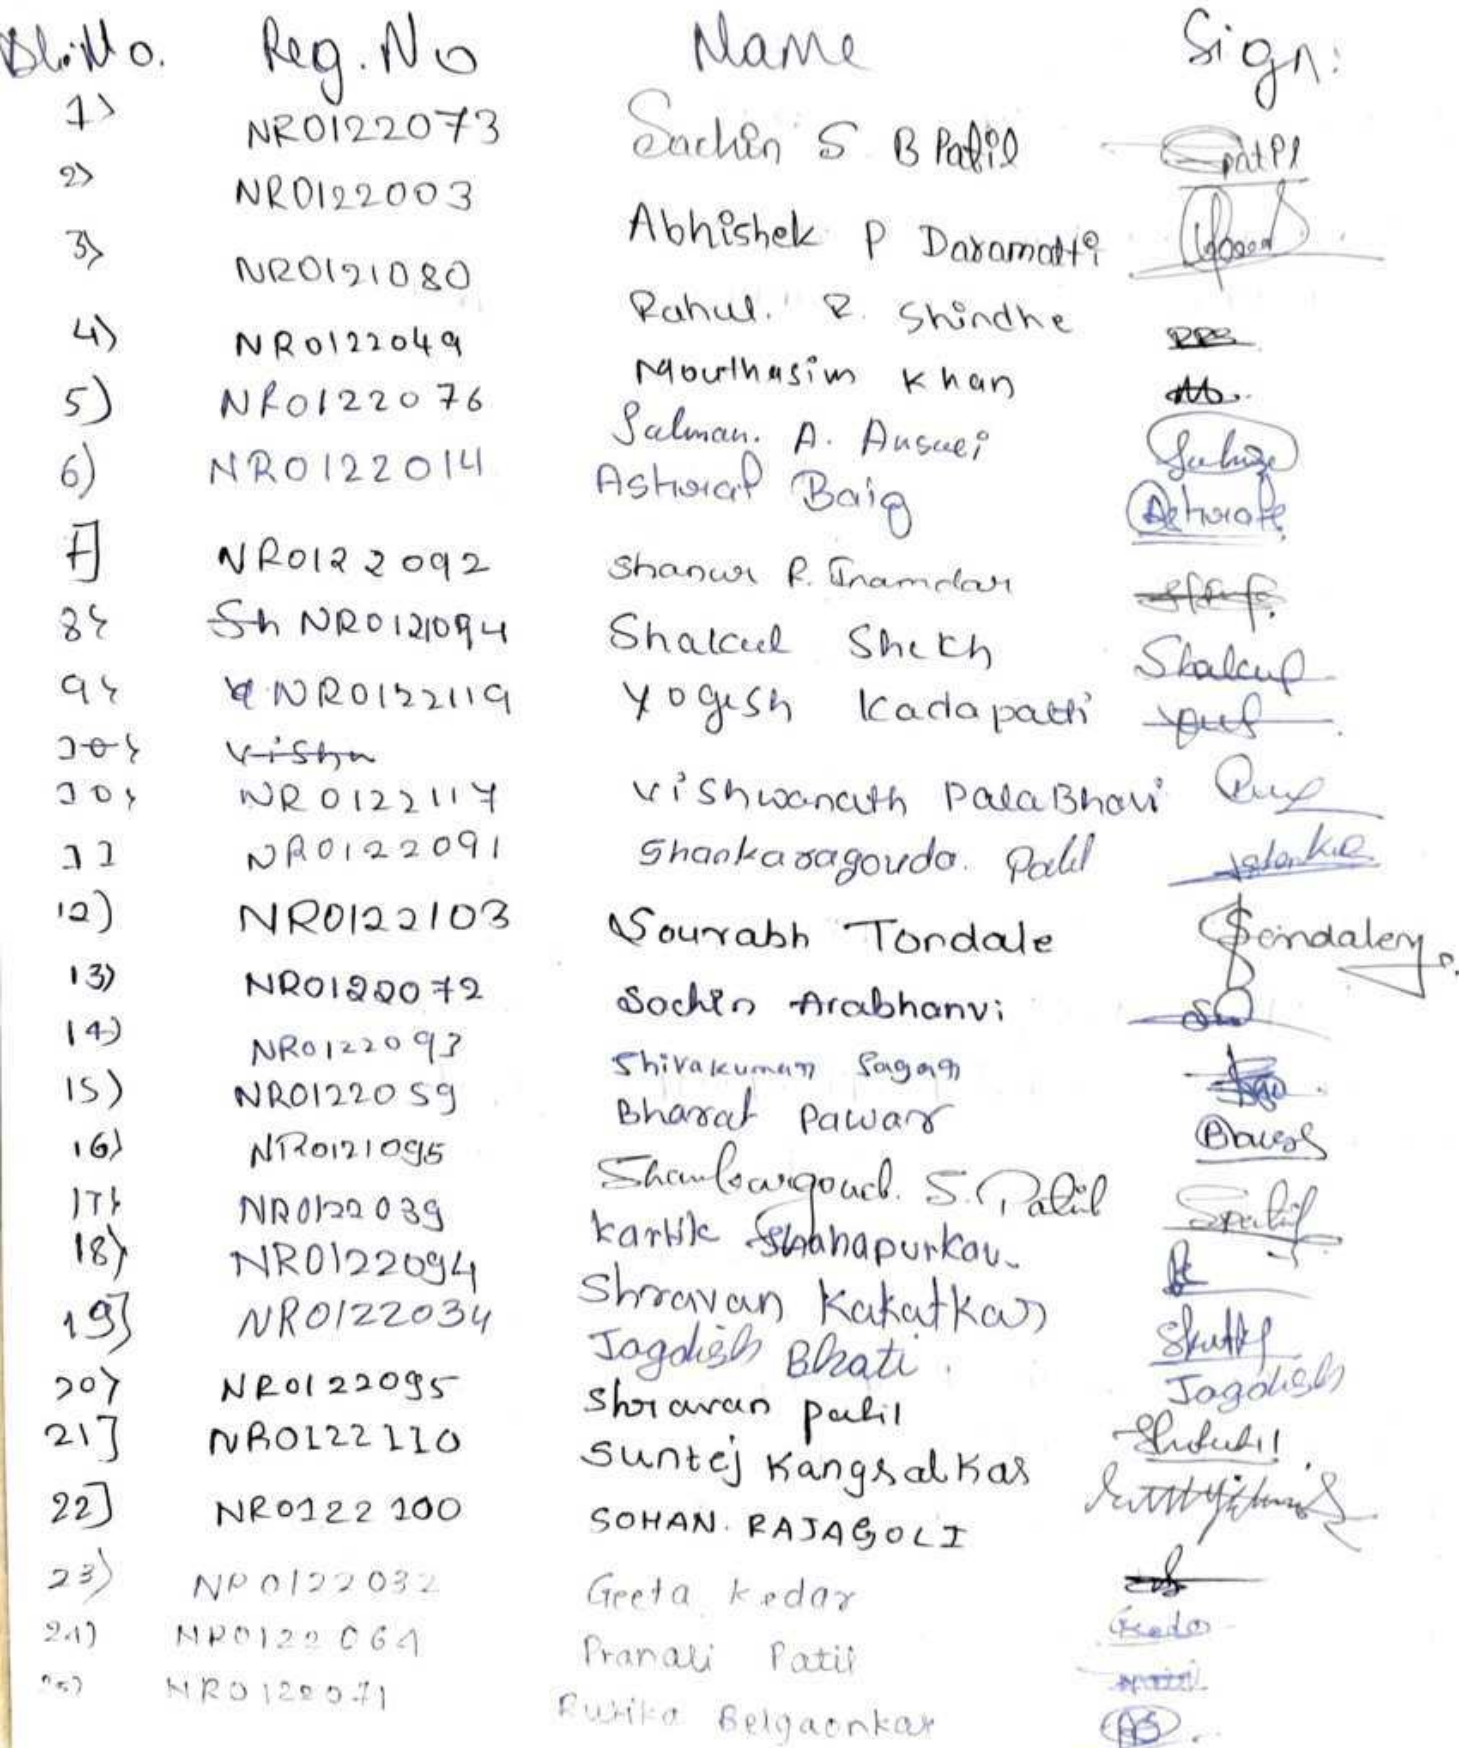 Sl. No. Reg. No Name Sign:
1) NR0122073 Sachin S B Patil
2) NR0122003 Abhishek P Daramatti
3) NR0121080 Rahul. R. Shindhe
4) NR0122049 Mourthasim Khan
5) NR0122076 Salman. A. Ansari
6) NR0122014 Ashraf Baig Ashraf
7] NR0122092 Shanur R. Inamdar
8} Sh NR0121094 Shakeel Shekh Shakeel
9} NR0122119 Yogesh Kadapatti
10} Vishu
10} NR0122117 Vishwanath PalaBhavi
11 NR0122091 Shankaragouda. Patil
12) NR0122103 Sourabh Tondale
13) NR0122072 Sachin Arabhanvi
14) NR0122093 Shivakumar Sagar
15) NR0122059 Bharat Pawar
16) NR0121095 Shankargoud. S. Patil
17} NR0122039 Kartik Shahapurkar
18) NR0122094 Shravan Kakatkar
19] NR0122034 Jagdish Bhati. Jagdish
20) NR0122095 Shravan patil
21] NR0122110 Suntej Kangralkar
22] NR0122100 SOHAN. RAJAGOLI
23) NR0122032 Geeta Kedar
24) NR0122064 Pranali Patil
25) NR0122071 Belgaonkar